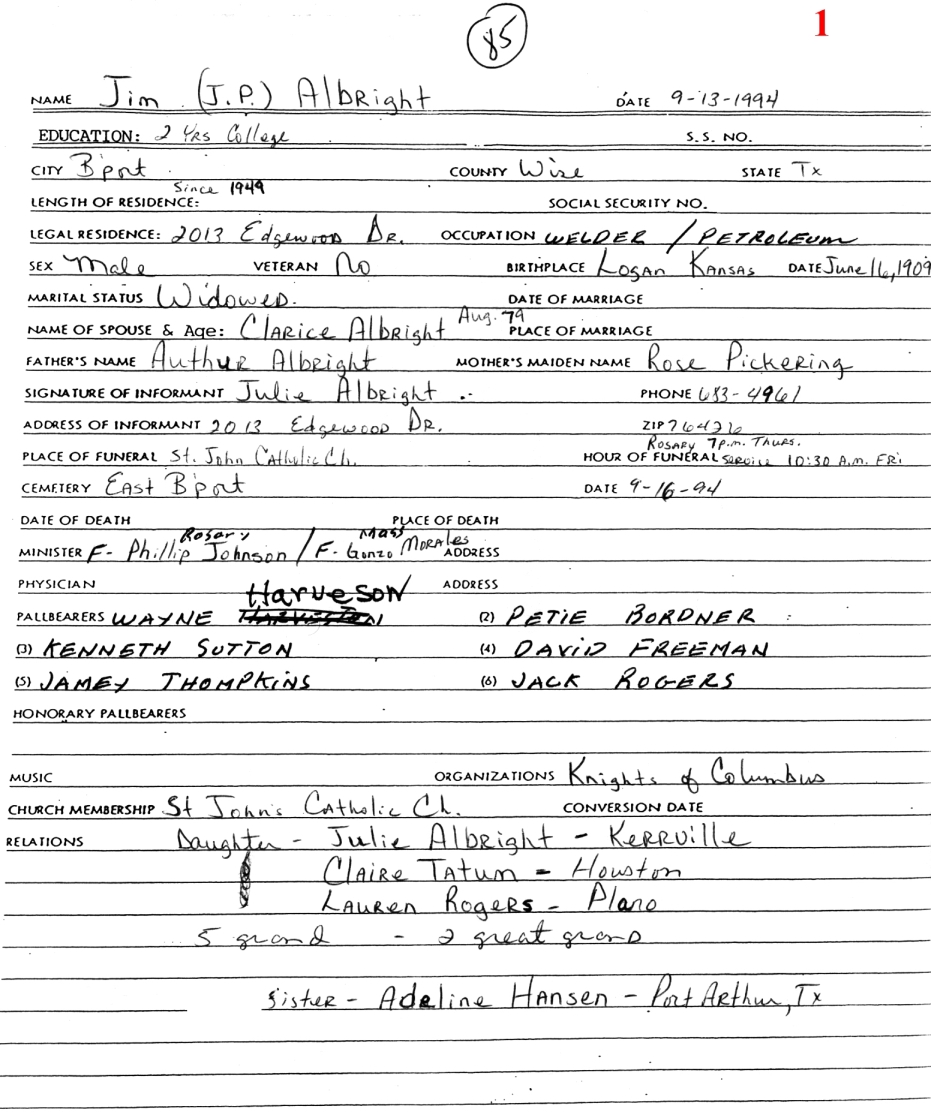 85
1
NAME Jim (J.P.) Albright DATE 9-13-1994
EDUCATION: 2 Yrs College S.S. NO.
CITY B'port COUNTY Wise STATE Tx
Since 1949
LENGTH OF RESIDENCE: SOCIAL SECURITY NO.
LEGAL RESIDENCE: 2013 Edgewood Dr. OCCUPATION WELDER / PETROLEUM
SEX Male VETERAN No BIRTHPLACE Logan Kansas DATE June 16, 1909
MARITAL STATUS Widowed. DATE OF MARRIAGE
NAME OF SPOUSE & Age: Clarice Albright Aug. 79 PLACE OF MARRIAGE
FATHER'S NAME Authur Albright MOTHER'S MAIDEN NAME Rose Pickering
SIGNATURE OF INFORMANT Julie Albright PHONE 683-4961
ADDRESS OF INFORMANT 2013 Edgewood Dr. ZIP 76426
Rosary 7p.m. Thurs.
PLACE OF FUNERAL St. John Catholic Ch. HOUR OF FUNERAL Service 10:30 A.m. FRi
CEMETERY East B'port DATE 9-16-94
DATE OF DEATH PLACE OF DEATH
Rosary Mass
MINISTER F- Phillip Johnson / F- Gonzo Morales ADDRESS
PHYSICIAN ADDRESS
Harveson
PALLBEARERS WAYNE (2) PETIE BORDNER
(3) KENNETH SUTTON (4) DAVID FREEMAN
(5) JAMEY THOMPKINS (6) JACK ROGERS
HONORARY PALLBEARERS
MUSIC ORGANIZATIONS Knights of Columbus
CHURCH MEMBERSHIP St John's Catholic Ch. CONVERSION DATE
RELATIONS Daughter - Julie Albright - Kerrville
Claire Tatum - Houston
Lauren Rogers - Plano
5 grand - 2 great grand
Sister - Adeline Hansen - Port Arthur, Tx